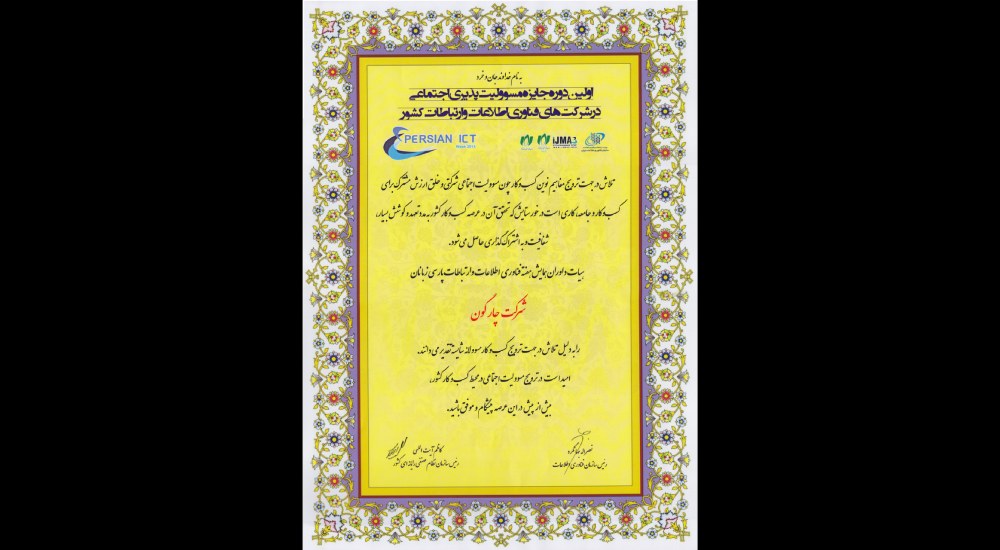 به نام خداوند جان و خرد
اولین دوره جایزه مسوولیت پذیری اجتماعی
در شرکت های فناوری اطلاعات و ارتباطات کشور
PERSIAN ICT
IJMA3
تلاش در جهت ترویج مفاهیم نوین کسب و کار چون مسوولیت اجتماعی شرکتی و خلق ارزش مشترک برای
کسب و کار و جامعه، کاری است در خور ستایش که تحقق آن در عرصه کسب و کار کشور به مدد تعهد و کوشش بسیار،
شفافیت و به اشتراک گذاری حاصل می شود.
هیات داوران همایش هفته فناوری اطلاعات و ارتباطات پارسی زبانان
شرکت چارگون
را به دلیل تلاش در جهت ترویج کسب و کار مسوولانه شایسته تقدیر می دانند.
امید است در ترویج مسوولیت اجتماعی در محیط کسب و کار کشور،
بیش از پیش در این عرصه پیشگام و موفق باشید.
نصراله جهانگرد
رئیس سازمان فناوری اطلاعات
کاظم آیت اللهی
رئیس سازمان نظام صنفی رایانه ای کشور